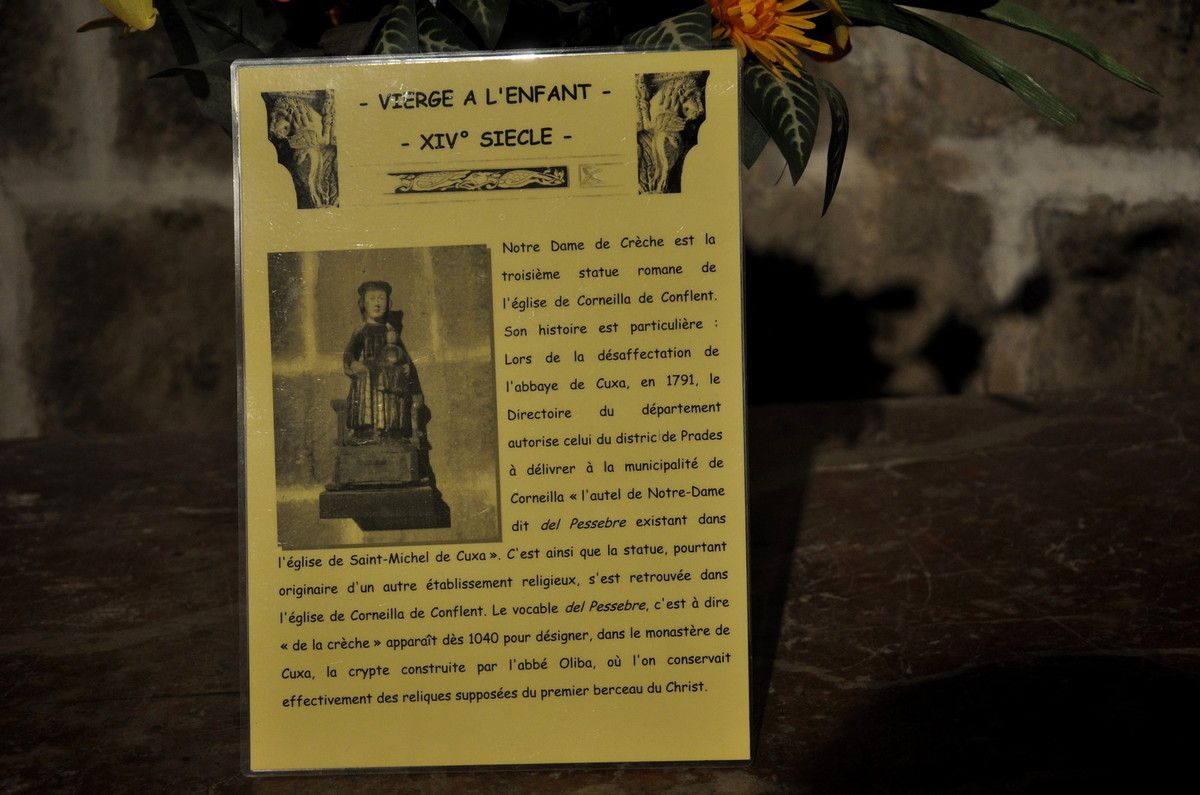 - VIERGE A L'ENFANT -
- XIV° SIECLE -
Notre Dame de Crèche est la
troisième statue romane de
l'église de Corneilla de Conflent.
Son histoire est particulière :
Lors de la désaffectation de
l'abbaye de Cuxa, en 1791, le
Directoire du département
autorise celui du distric de Prades
à délivrer à la municipalité de
Corneilla « l'autel de Notre-Dame
dit del Pessebre existant dans
l'église de Saint-Michel de Cuxa ». C'est ainsi que la statue, pourtant
originaire d'un autre établissement religieux, s'est retrouvée dans
l'église de Corneilla de Conflent. Le vocable del Pessebre, c'est à dire
« de la crèche » apparaît dès 1040 pour désigner, dans le monastère de
Cuxa, la crypte construite par l'abbé Oliba, où l'on conservait
effectivement des reliques supposées du premier berceau du Christ.